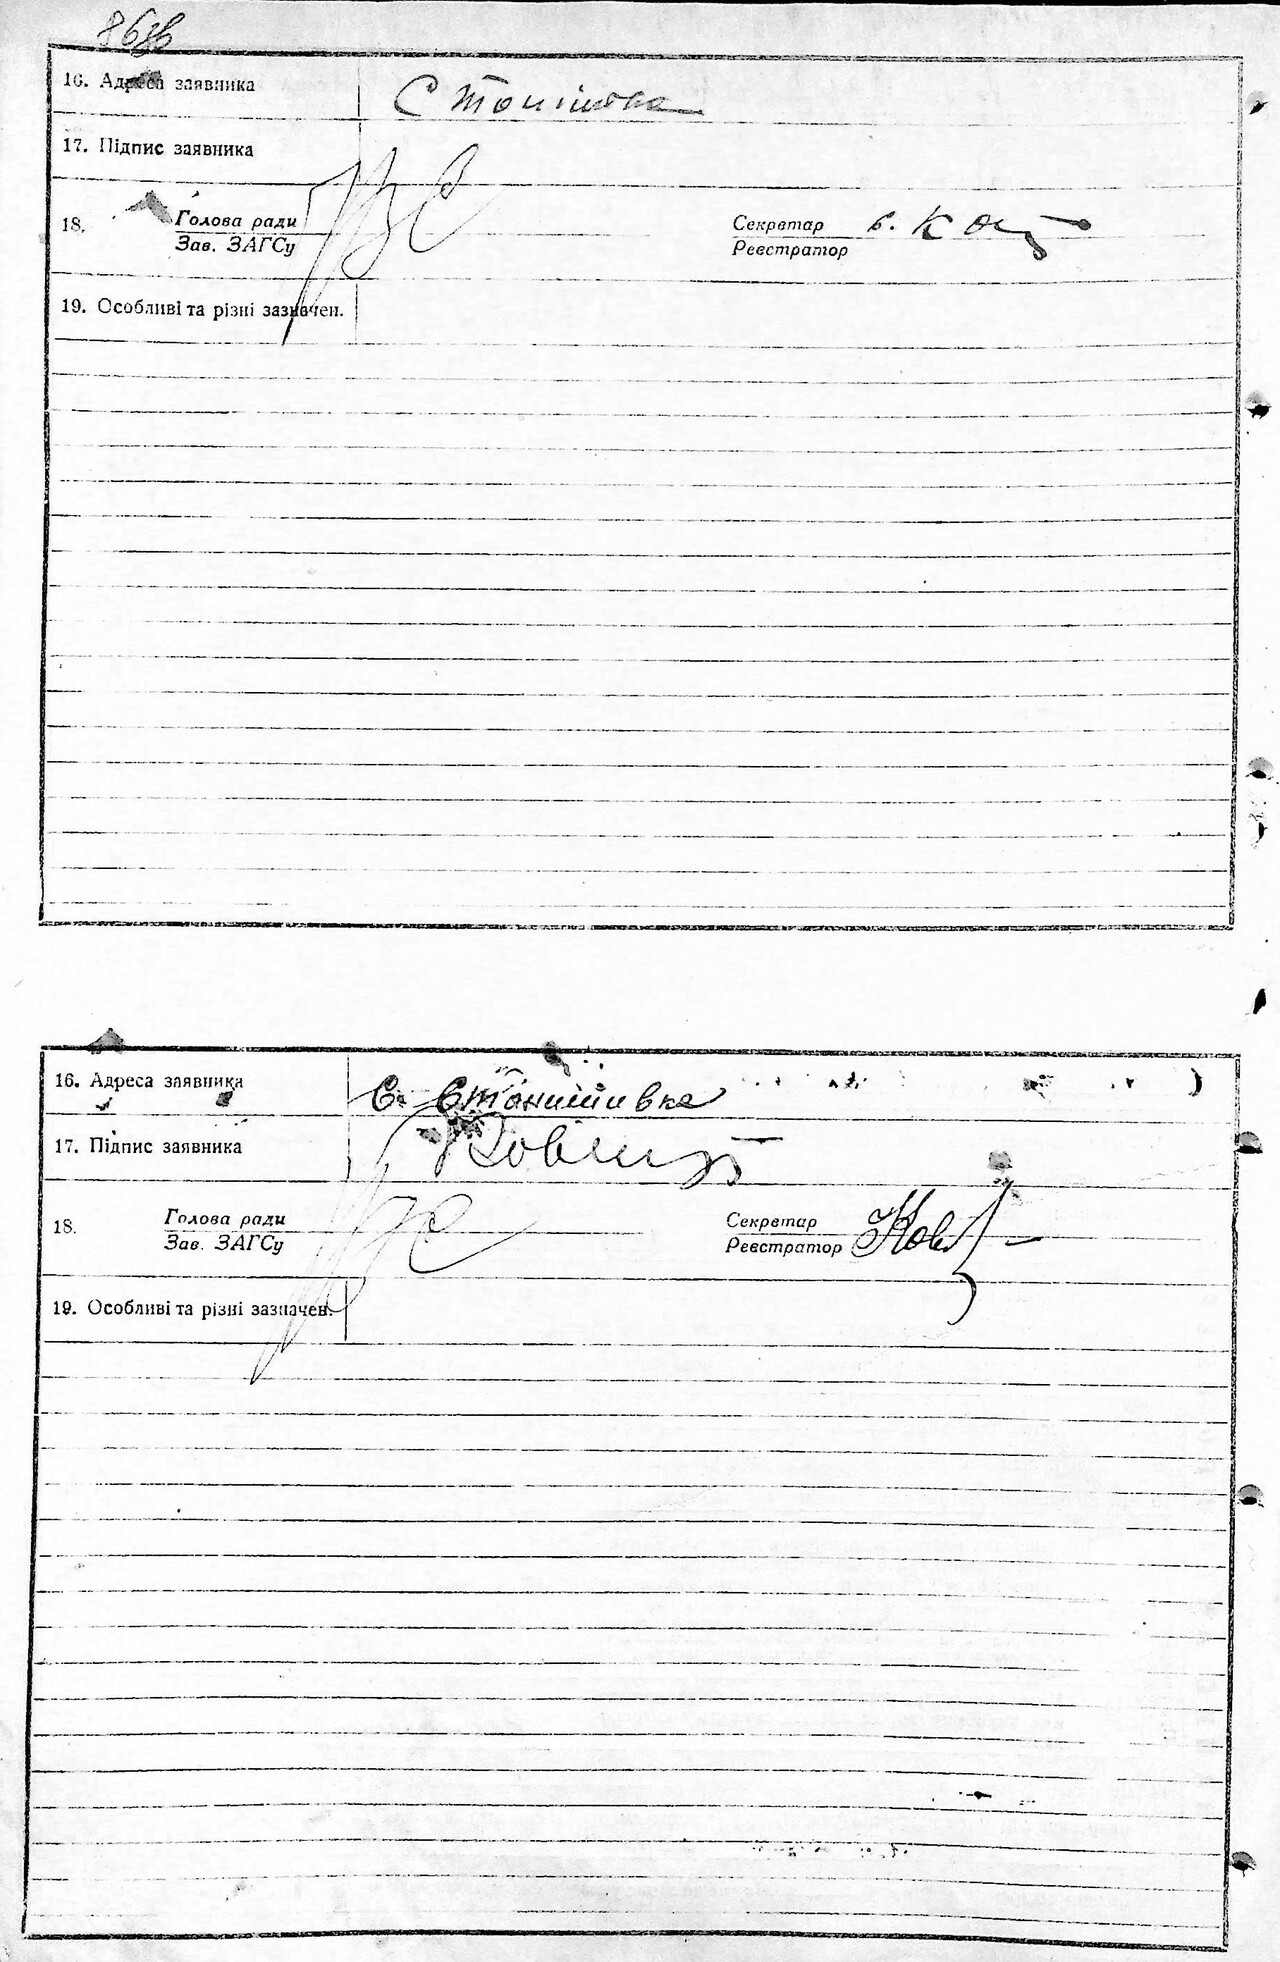 16. Адреса заявника
17. Підпис заявника
18. Голова ради
Зав. ЗАГСу
Секретар
Реєстратор
19. Особливі та різні зазначен.
16. Адреса заявника С. Станишивка
17. Підпис заявника
18. Голова ради
Зав. ЗАГСу
Секретар
Реєстратор Ков
19. Особливі та різні зазначен.